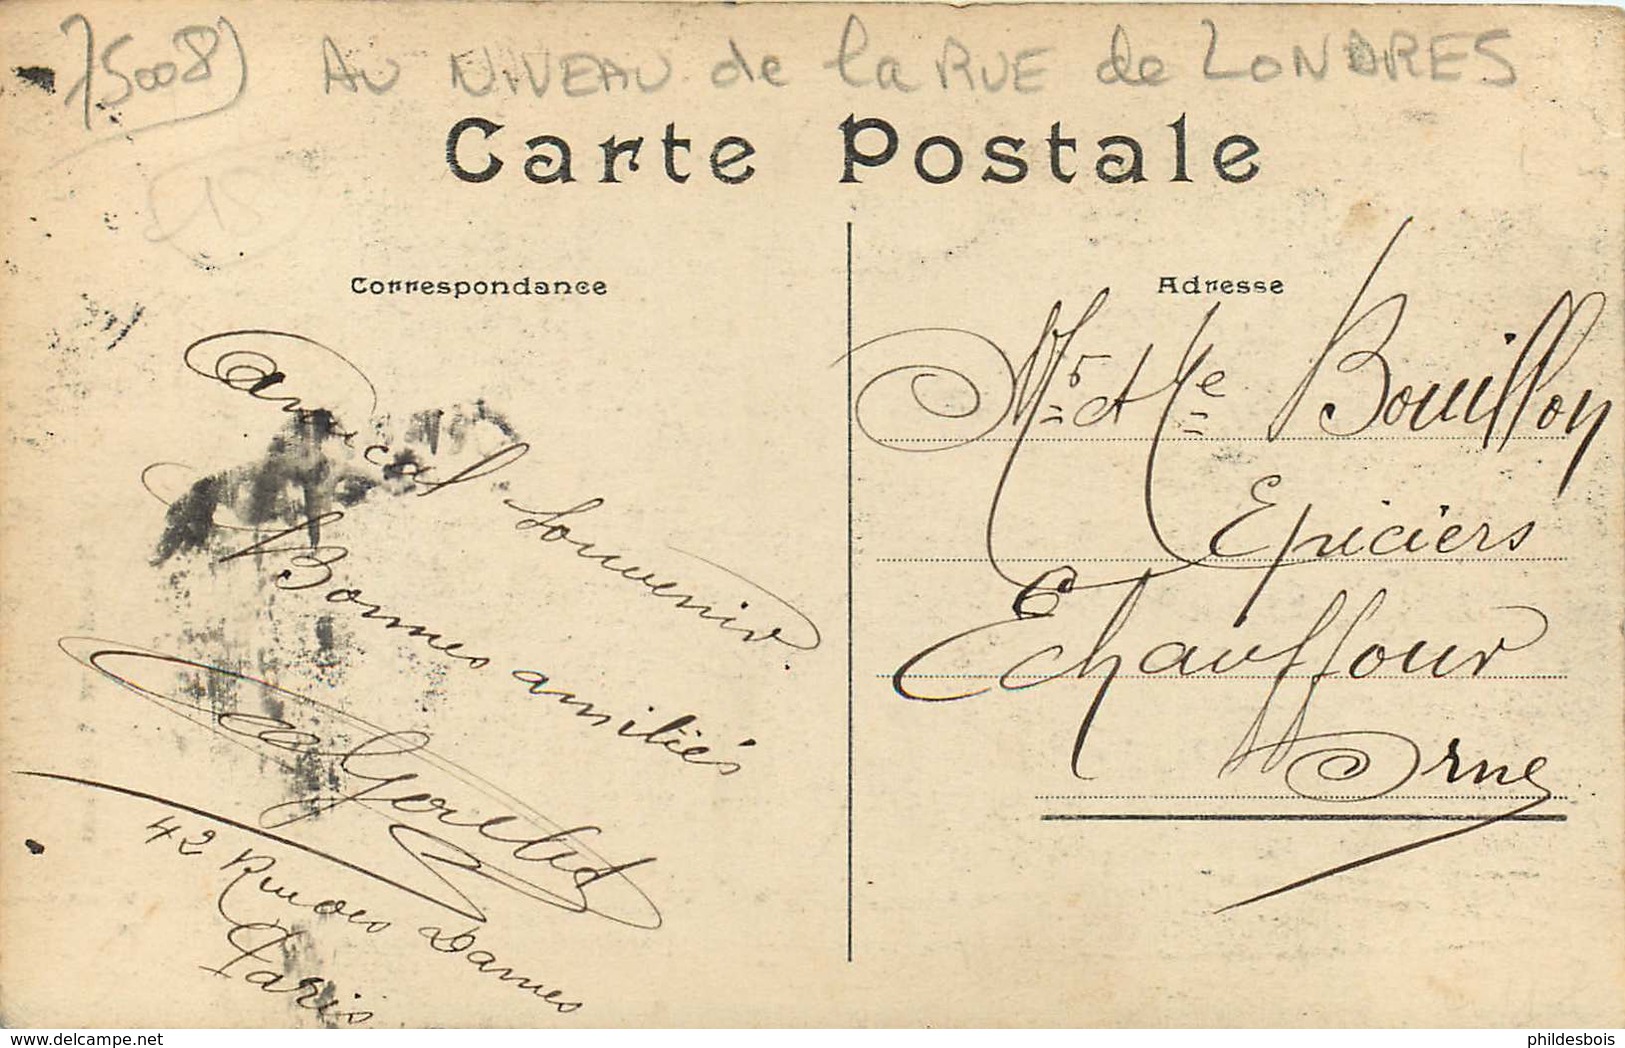 75008) AU NIVEAU de la RUE de LONDRES
Carte Postale
Correspondance
Amical Souvenir.
Bonnes amitiés
42 Rue des Dames
Paris
Adresse
Mr et Me Bouillon
Epiciers
Echauffour
Orne
delcampe.net
phildesbois